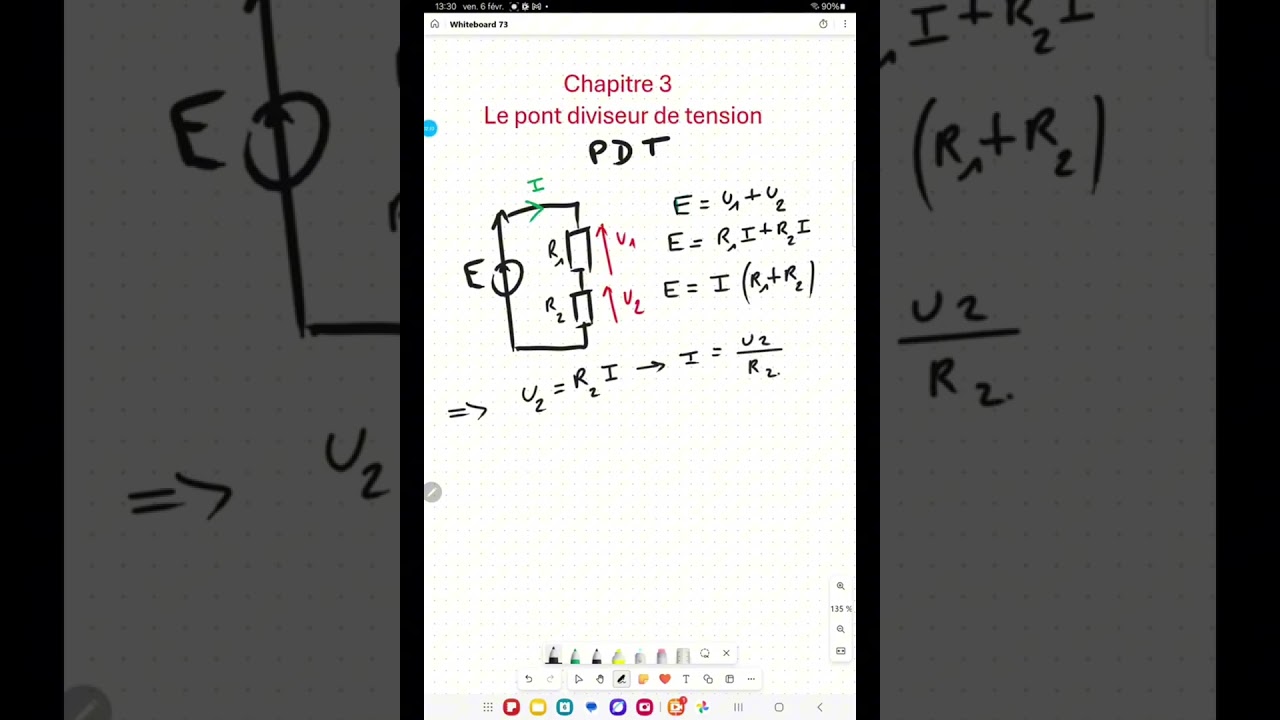 13:30 ven. 6 févr. 90%
Whiteboard 73
Chapitre 3
Le pont diviseur de tension
PDT
I
E
R1
U1
R2
U2
E = U1 + U2
E = R1 I + R2 I
E = I (R1 + R2)
=> U2 = R2 I → I = U2 / R2.
135 %
I + R2 I
(R1 + R2)
E
U2
R2.
=> U2